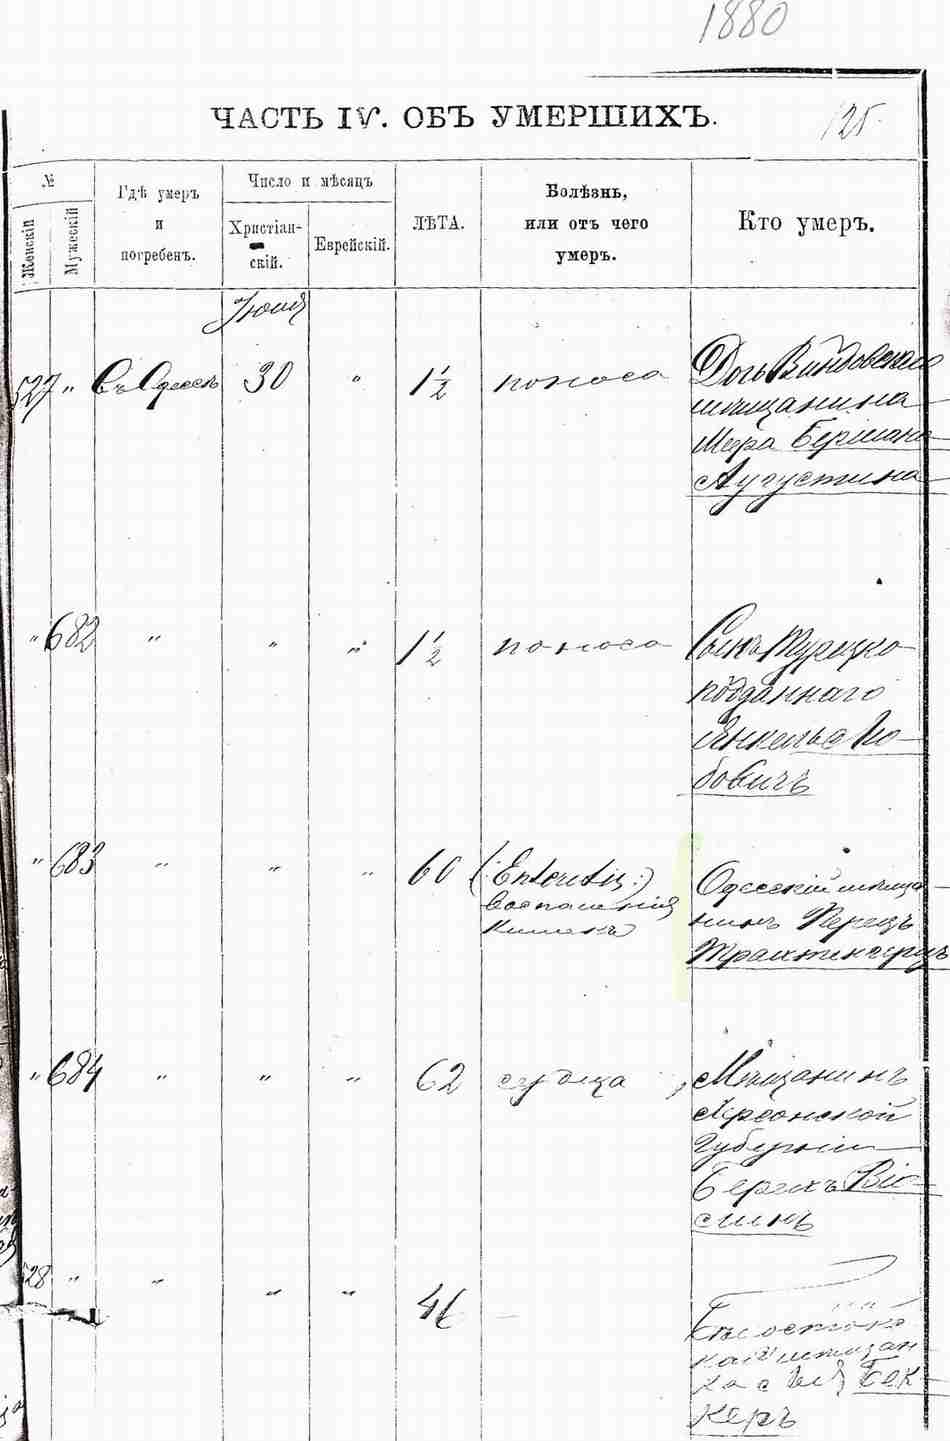 1880
ЧАСТЬ IV. ОБЪ УМЕРШИХЪ.
125.
№
Женскій
Мужескій
Гдѣ умеръ
и
погребенъ.
Число и мѣсяцъ
Христіан-
скій.
Еврейскій.
ЛѢТА.
Болѣзнь,
или отъ чего
умеръ.
Кто умеръ.
Іюня
527 " Въ Одессѣ 30 " 1½ поноса
Дочь Виндавскаго
мѣщанина
Аугустина
" 682 " " " 1½ поноса
Сынъ Турецко-
подданнаго
бовичъ
" 683 " " " 60 (:Enteritis:)
Воспаленія
Кишекъ
Одесскій мѣща-
нинъ Перецъ
" 684 " " " 62 сердца
Мѣщанинъ
Херсонской
Губерніи
528 " " " " 46 —
Бѣлосток-
ская мѣщан-
ка Бек-
керъ